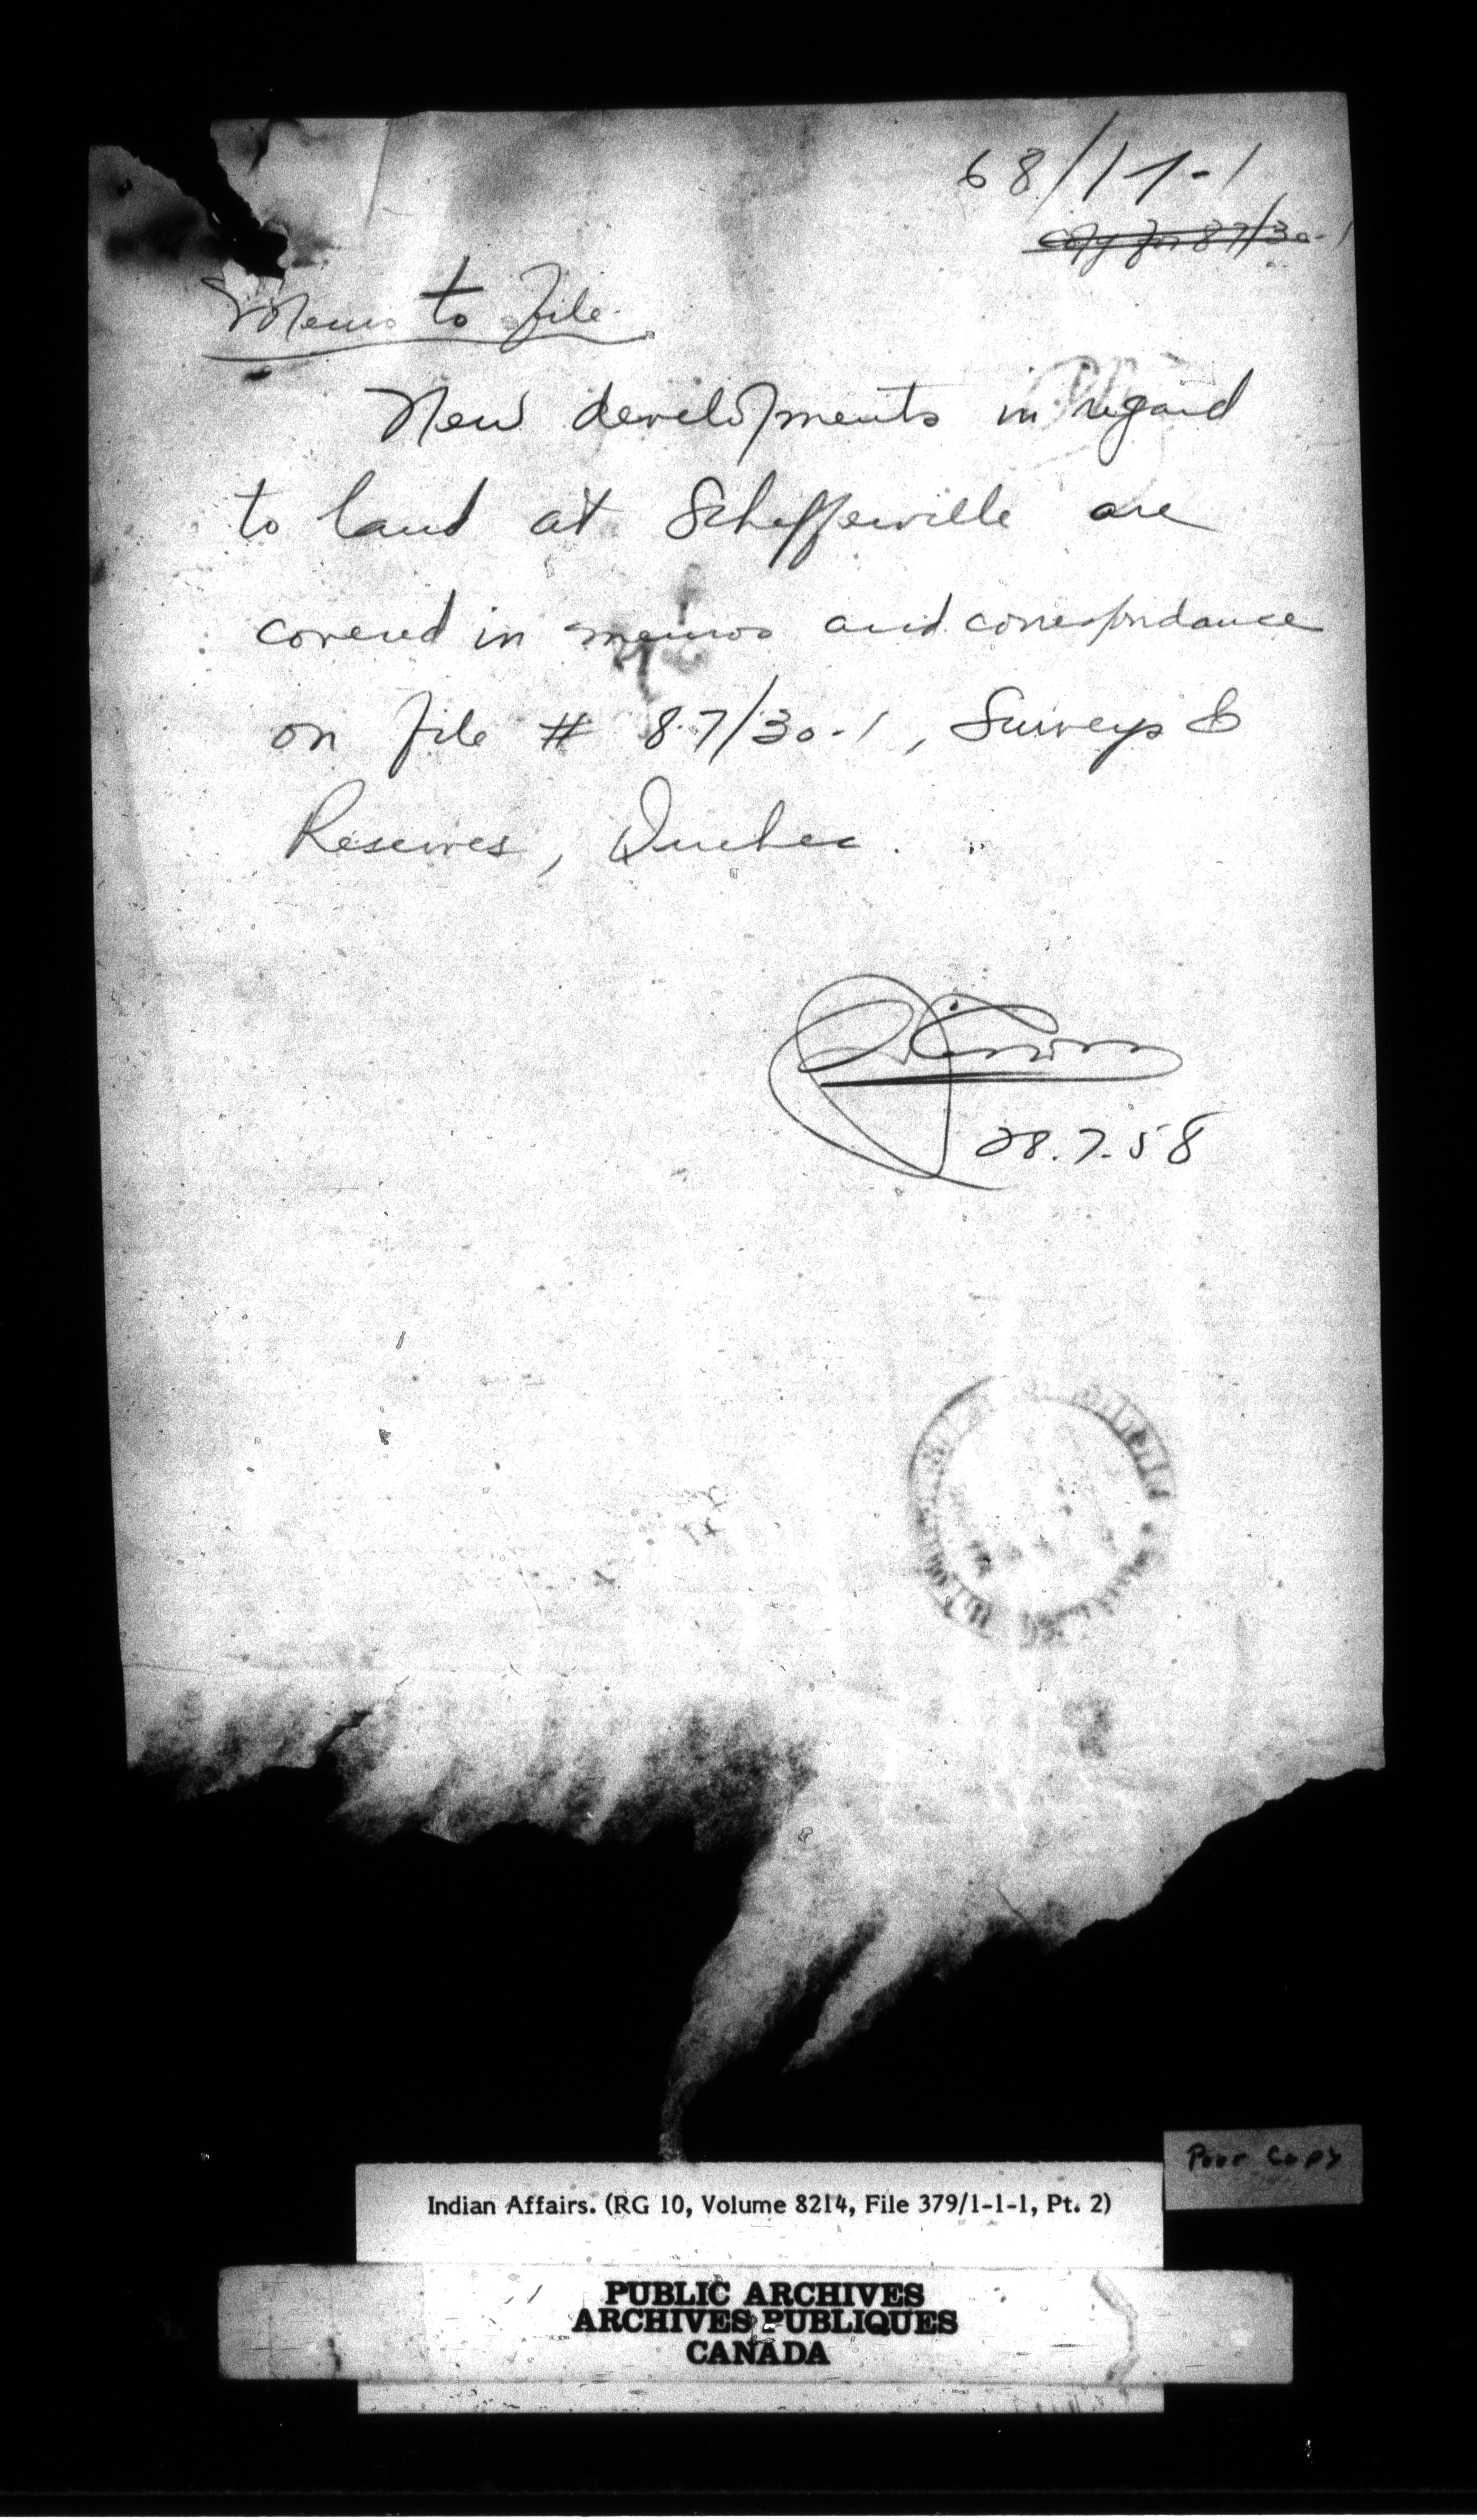 68/11-1
Copy for 87/30-1
Memo to file
New developments in regard
to land at Schefferville are
covered in memos and correspondance
on file # 87/30-1, Surveys &
Reserves, Quebec.
28.7.58
Poor Copy
Indian Affairs. (RG 10, Volume 8214, File 379/1-1-1, Pt. 2)
PUBLIC ARCHIVES
ARCHIVES PUBLIQUES
CANADA